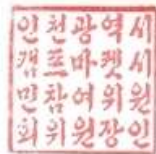 인천광역시
캠프마켓시
민참여위원
회위원장인